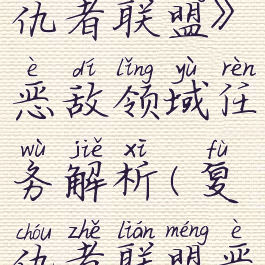 仇者联盟》
è dí lǐng yù rèn
恶敌领域任
wù jiě xī fù
务解析(复
chóu zhě lián méng è
仇者联盟恶